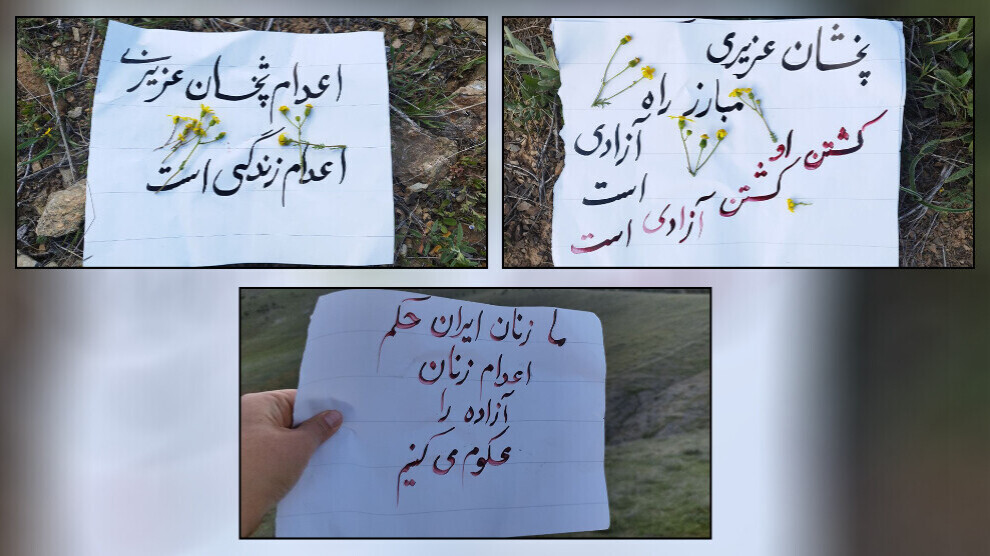 اعدام پخشان عزیزی
اعدام زندگی است
پخشان عزیزی
مبارز راه
آزادی
است
کشتن او
کشتن
آزادی
است
ما زنان ایران حکم
اعدام زنان
آزاده را
محکوم می کنیم